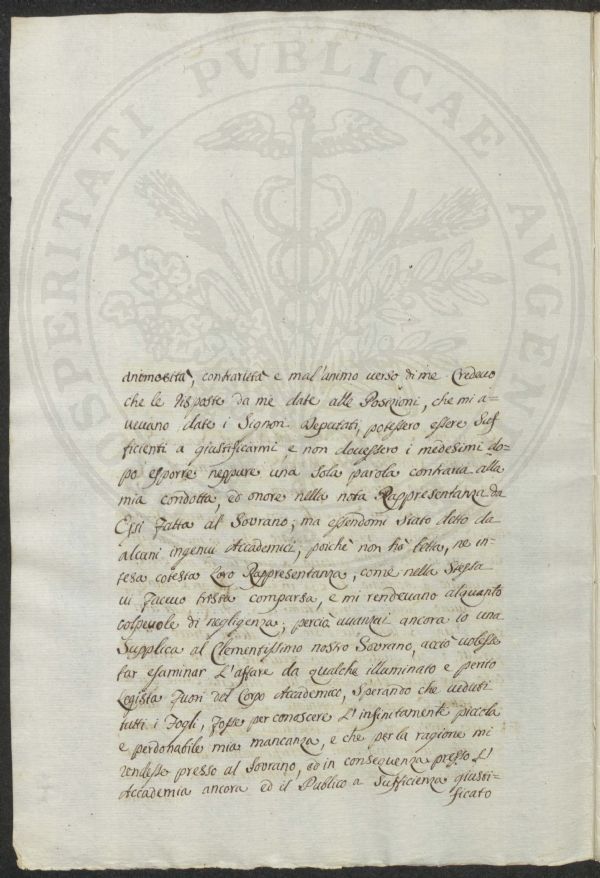 PROSPERITATI PVBLICAE AVGENDAE
animosità, contrarietà e mal'animo verso di me. Credevo
che le risposte da me date alle Posizioni, che mi a-
vevano date i Signori Deputati, potessero essere suf
ficienti a giustificarmi, e non dovessero i medesimi do-
po esporre neppure una sola parola contraria alla
mia condotta, ed onore nella nota Rappresentanza da
Essi fatta al Sovrano; ma essendomi stato detto da
alcuni ingenui Accademici, poichè non hò letta, ne in-
tesa cotesta loro Rappresentanza, come nella stessa
vi facevo trista comparsa, e mi rendevano alquanto
colpevole di negligenza; perciò avanzai ancora io una
supplica al Clementissimo nostro Sovrano, acciò volesse
far esaminar L'affare da qualche illuminato e perito
Legista fuori del Corpo Accademico, sperando che veduti
tutti i fogli, fosse per conoscere L'infinitamente piccola
e perdonabile mia mancanza, e che per la ragione mi
rendesse presso al Sovrano, ed in conseguenza presso L'
Accademia ancora ed il Publico a sufficienza giusti-
ficato